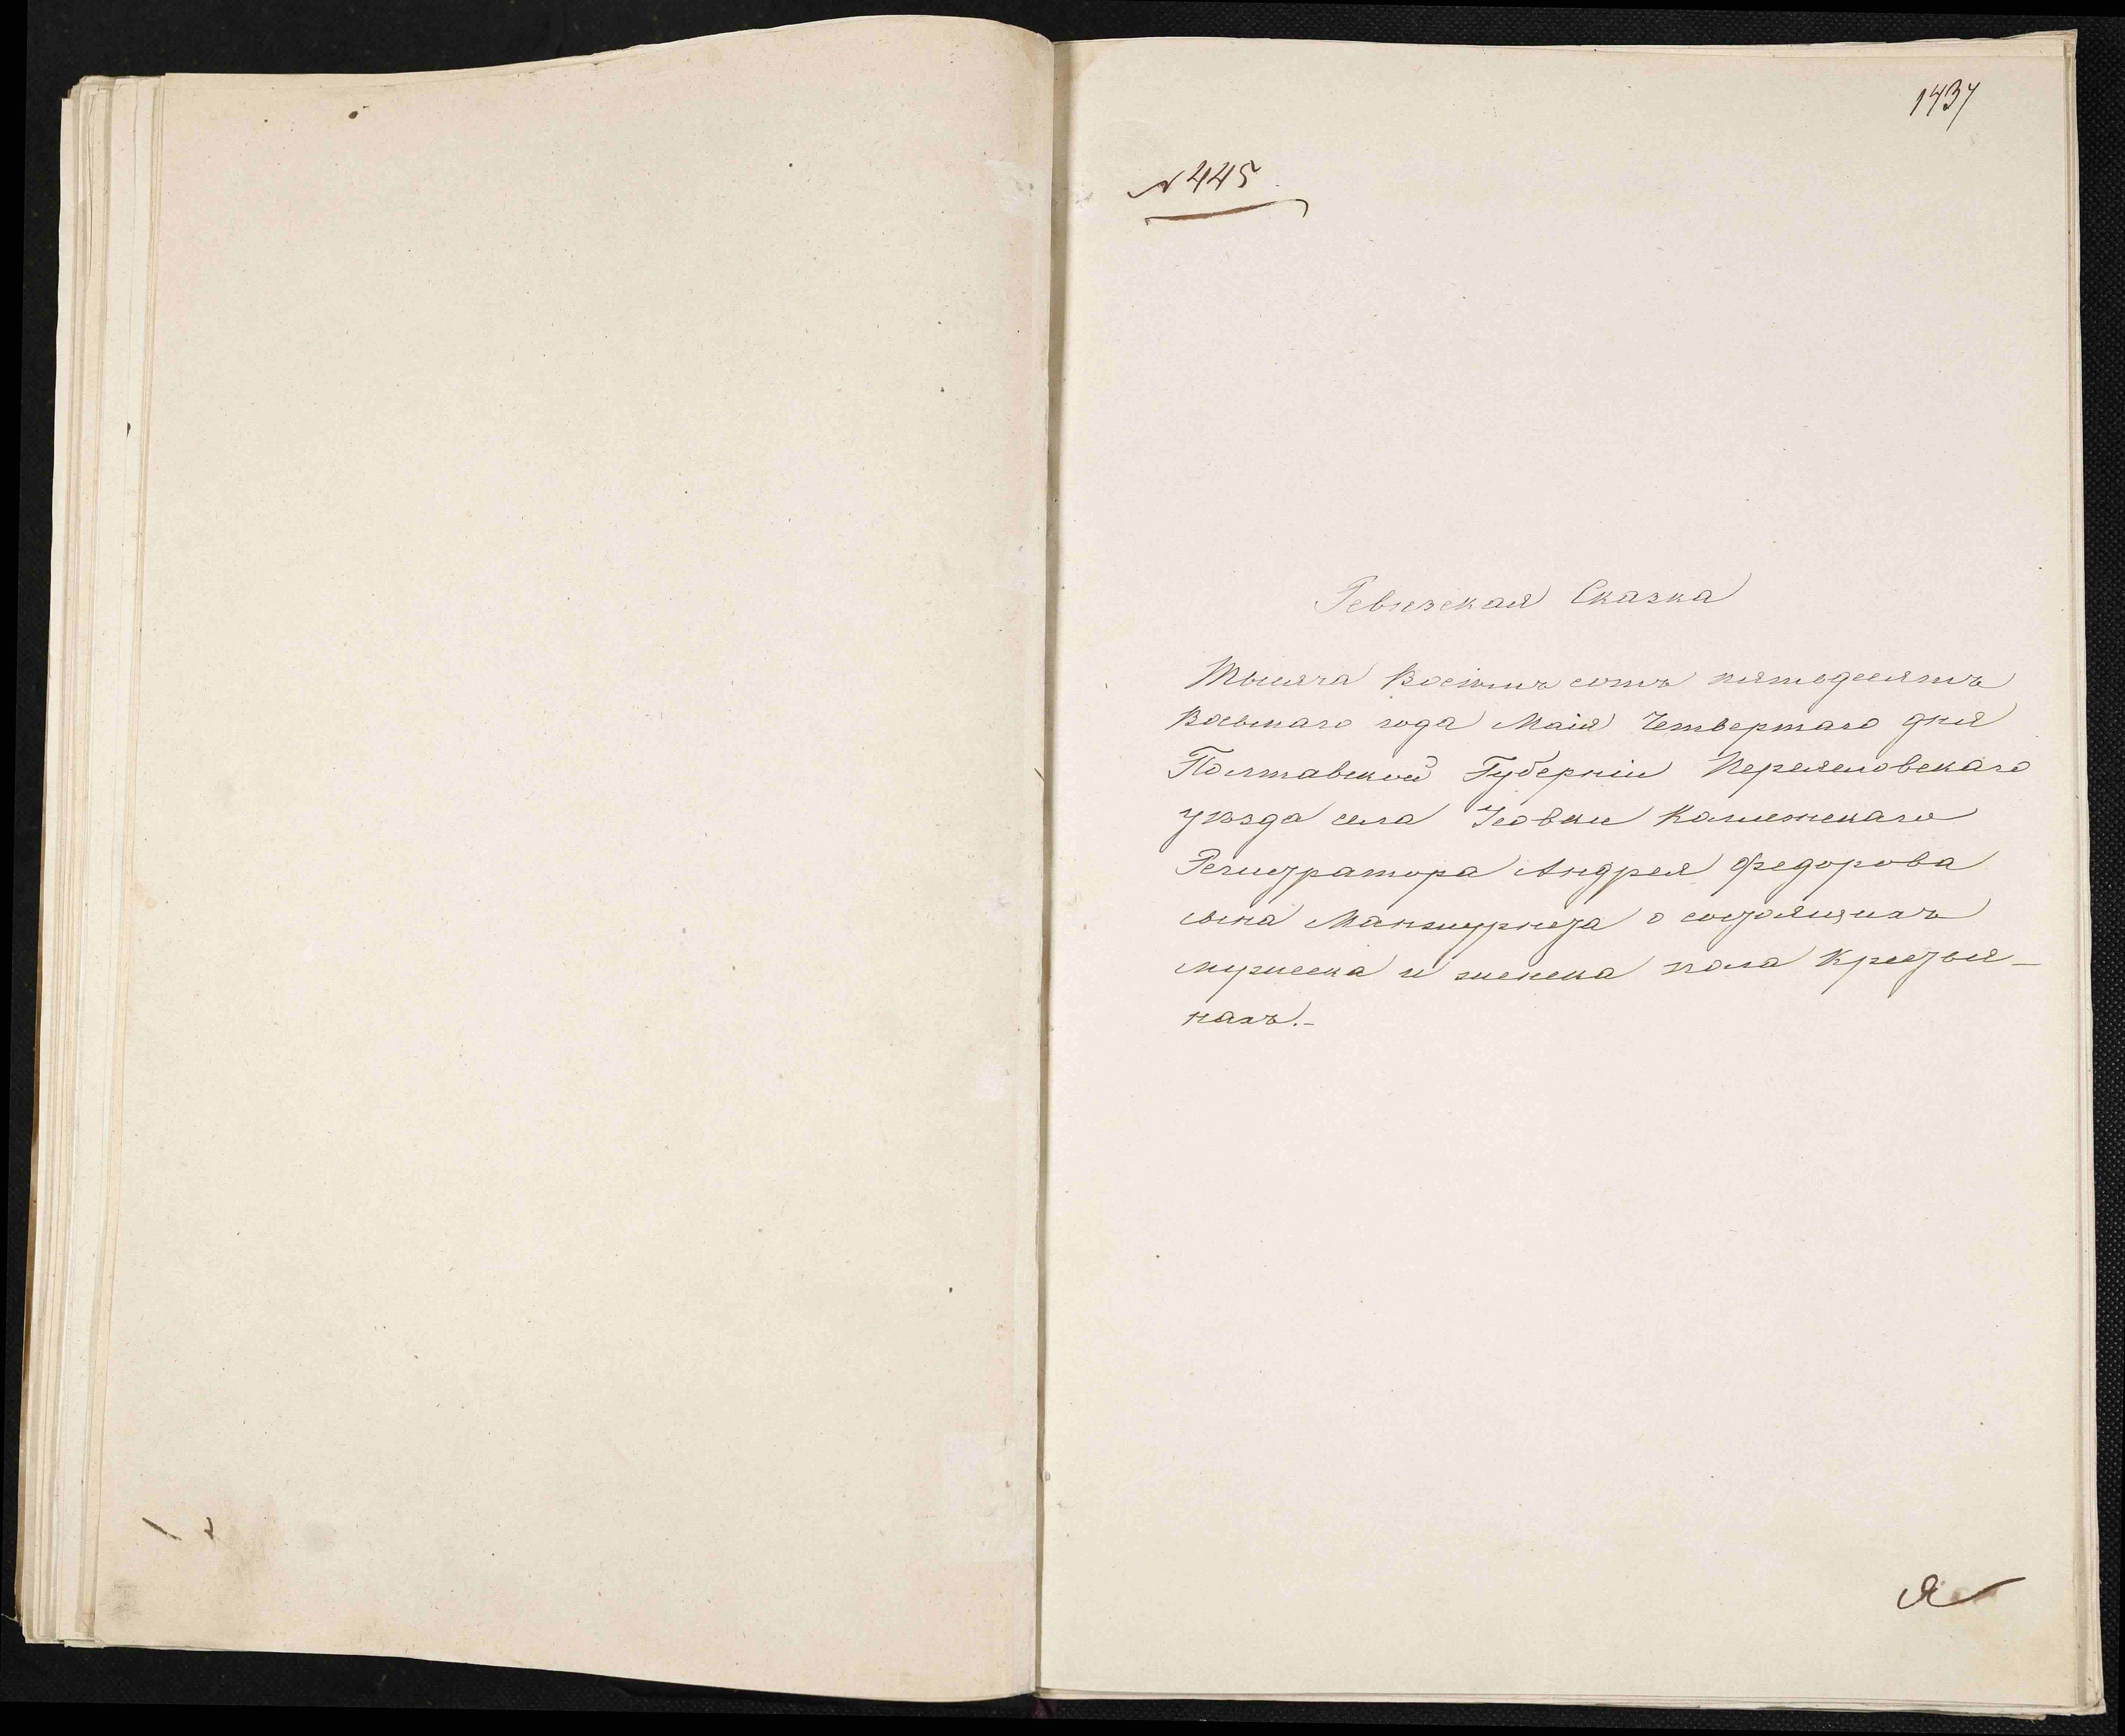 1437
№ 445
Ревизская Сказка
Тысяча Восемь сотъ пятьдесятъ
Восьмаго года Маія Четвертаго дня
Полтавской Губерніи Переяславскаго
уѣзда села Усовки Колежскаго
Регистратора Андрея Федорова
сына о состоящихъ
мужеска и женска пола Крестья-
нахъ.-